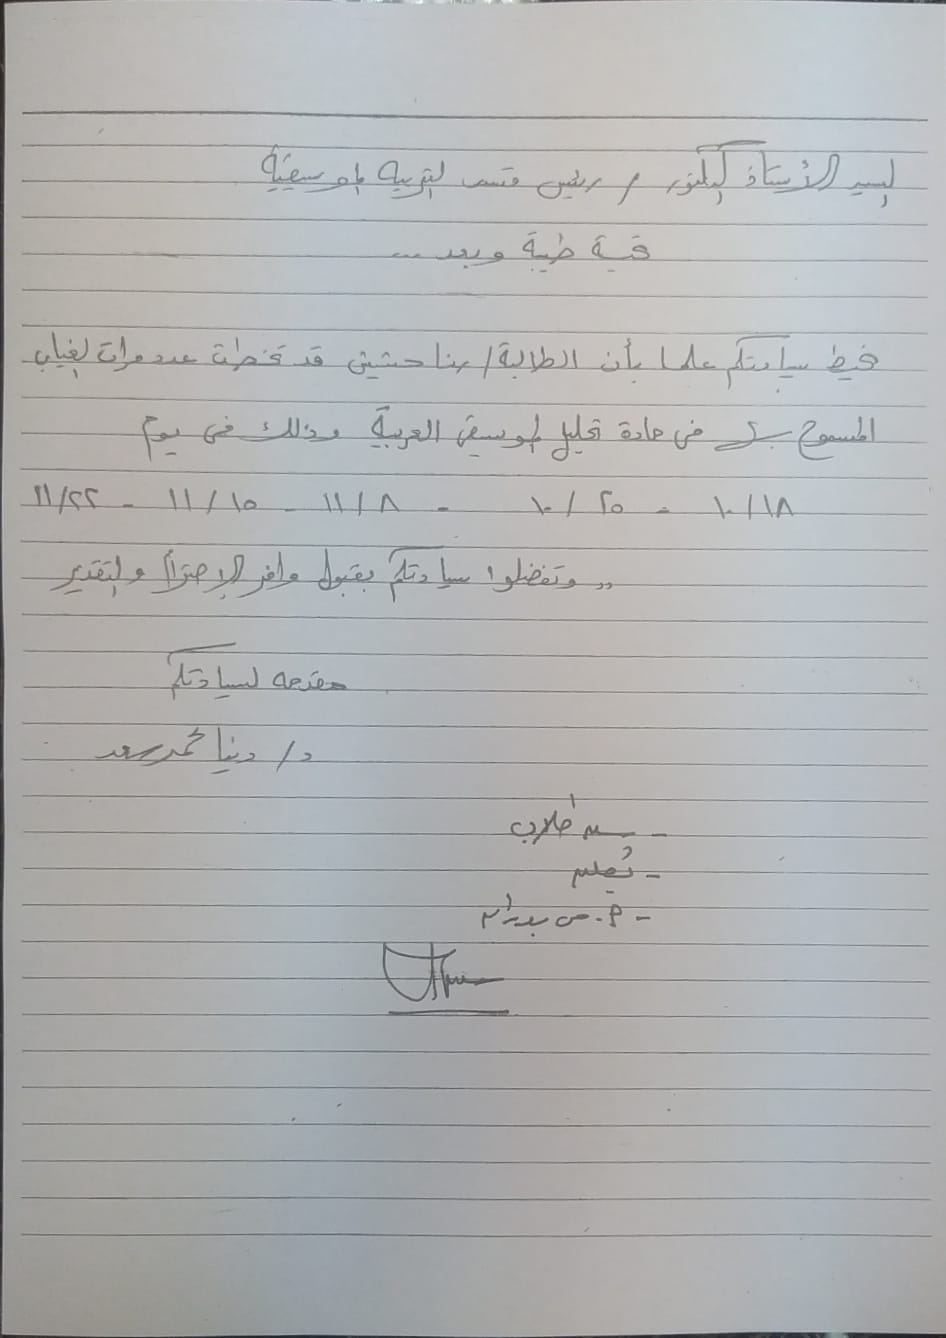 السيد الأستاذ الدكتور / رئيس قسم التربية الموسيقية
تحية طيبة وبعد ...
نحيط سيادتكم علما بأن الطالبة / رينا حشيش قد تخطت عدد مرات الغياب
المسموح بها في مادة تحليل الموسيقى العربية وذلك في يوم
١٠/١٨ - ١٠/٢٥ - ١١/٨ - ١١/١٥ - ١١/٢٢
وتفضلوا سيادتكم بقبول وافر الإحترام والتقدير ,,
مقدمه لسيادتكم
د/ دينا محمد سعد